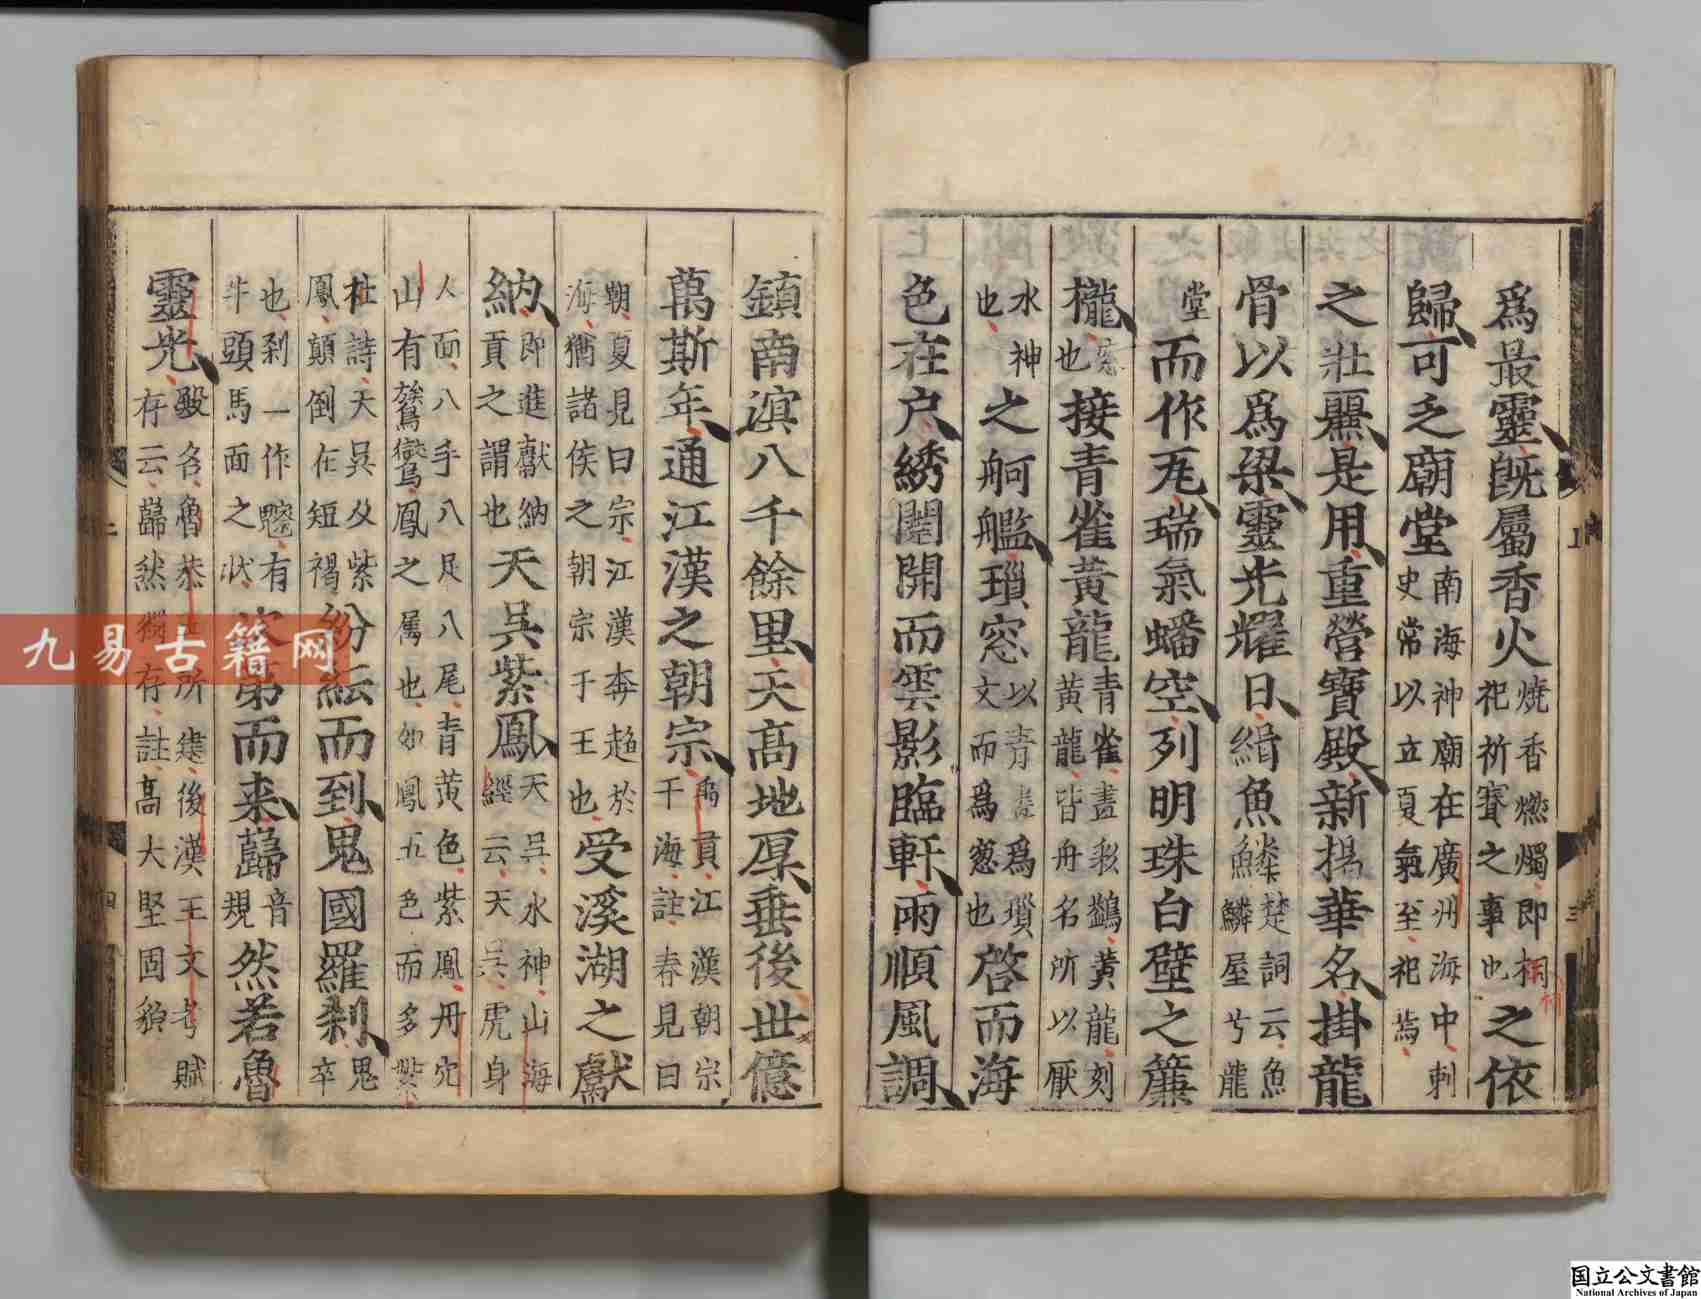 爲最靈既屬香火燒香燃燭即祠祀祈賽之事也之依
歸可乏廟堂南海神廟在廣州海中刺史常以立夏氣至祀焉
之壯麗是用重營寶殿新揭華名掛龍
骨以爲梁靈光耀日緝魚鱗楚詞云魚鱗屋兮龍
堂而作瓦瑞氣蟠空列明珠白壁之簾
櫳也接青雀黃龍青雀畫彩鷁黃龍刻黃龍皆舟名所以厭
水神也之舸艦瑣窓以青爲瑣文而爲窓也啓而海
色在户綉闥開而雲影臨軒雨順風調
鎮南溟八千餘里天高地厚垂後世億
萬斯年通江漢之朝宗禹貢江漢朝宗于海註春見曰
朝夏見曰宗江漢奔趋於海猶諸侯之朝宗于王也受溪湖之獻
納即進獻納貢之謂也天吳紫鳳天吳水神山海經云天吳虎身
人面八手八足八尾青黃色紫鳳丹穴山有鸑鷟鳳之属也如鳳五色而多紫
杜詩天吳及紫鳳顛倒在短褐紛紜而到鬼國羅刹鬼卒
也刹一作魑有牛頭馬面之狀次第而来巋音規然若魯
靈光殿名魯恭王所建後漢王文考賦存云巋然獨存註高大堅固貌
九易古籍网
国立公文書館
National Archives of Japan